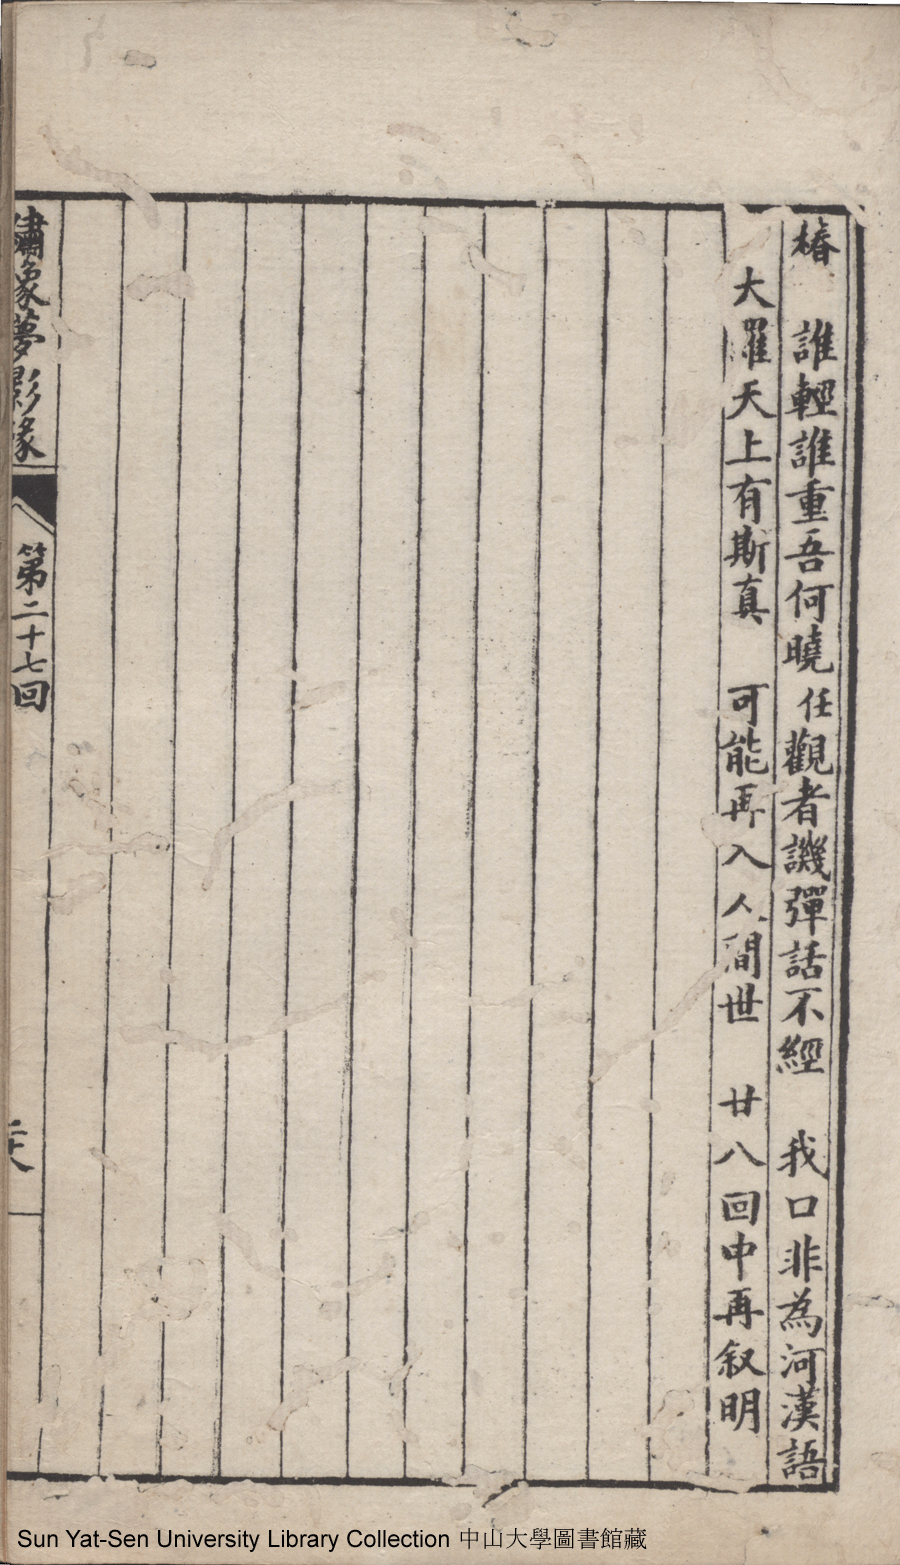 椿　誰輕誰重吾何曉任觀者譏彈話不經　我口非為河漢語
大羅天上有斯真　可能再入人間世　廿八回中再叙明
繡像夢影緣　第二十七回
Sun Yat-Sen University Library Collection 中山大學圖書館藏